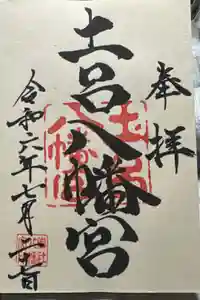 奉拝
土呂八幡宮
令和六年七月二十七日